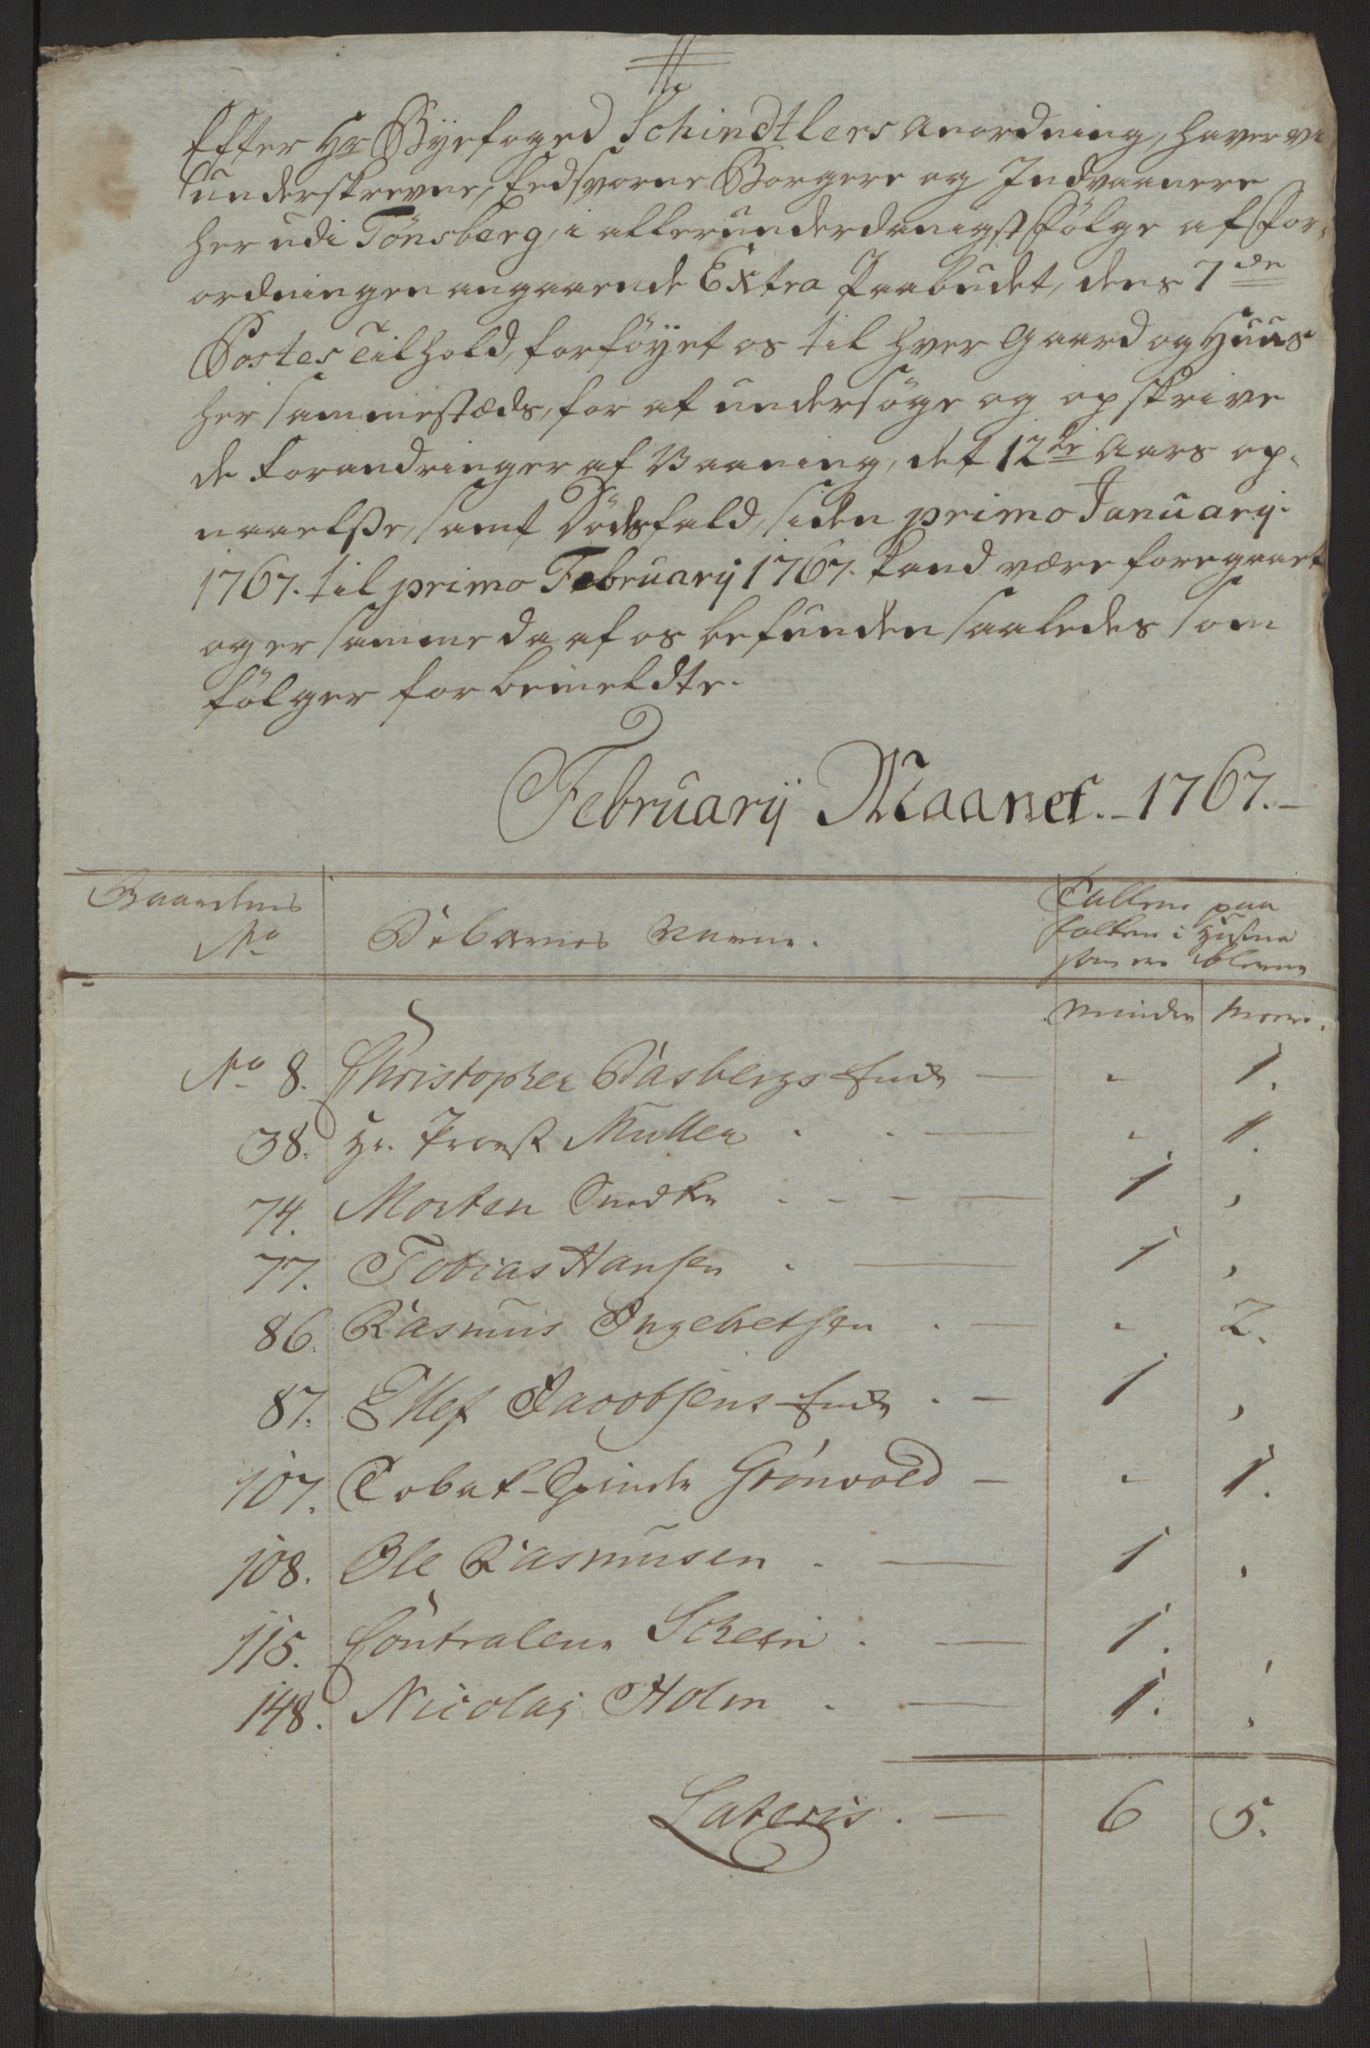 Efter Hr Byefoged Schindtlers Anordning, haver vi
underskrevne Eedsvorne Borgere og Indvaanere
her udi Tönsberg, i allerunderdanigst Fölge af For-
ordningen angaaende Extra Paabudet, dens 7de
Postes Tilhold, forföyet os til hver Gaard og Huus
her sammestæds, for at undersöge og opskrive
de Forandringer af Vaaning, det 12te Aars op-
naaelse, samt Dödsfald, siden primo Januarij
1767. til primo Februarij 1767. kand være foregaaet
og er samme da af os befunden saaledes som
fölger for bemeldte.
Februarij Maanet. 1767.
Gaardenes No
Beboernes Navne.
Tallene paa
Folken i Husene
som ere bleven
Mindre Meere.
No 8. Christopher Dasbergs Enke — 1.
38. Hr. Provst Muller — 1.
74. Morten Snedker — 1
77. Tobias Hansen — 1
86. Rasmus Ingebretsen — 2.
87. Ellef Jacobsens Enke — 1
107. Tobak-Spinder Grönvold — 1.
108. Ole Rasmusen — 1
115. Controleur — 1.
148. Nicolaj Holm — 1.
Lateris. — 6 5.